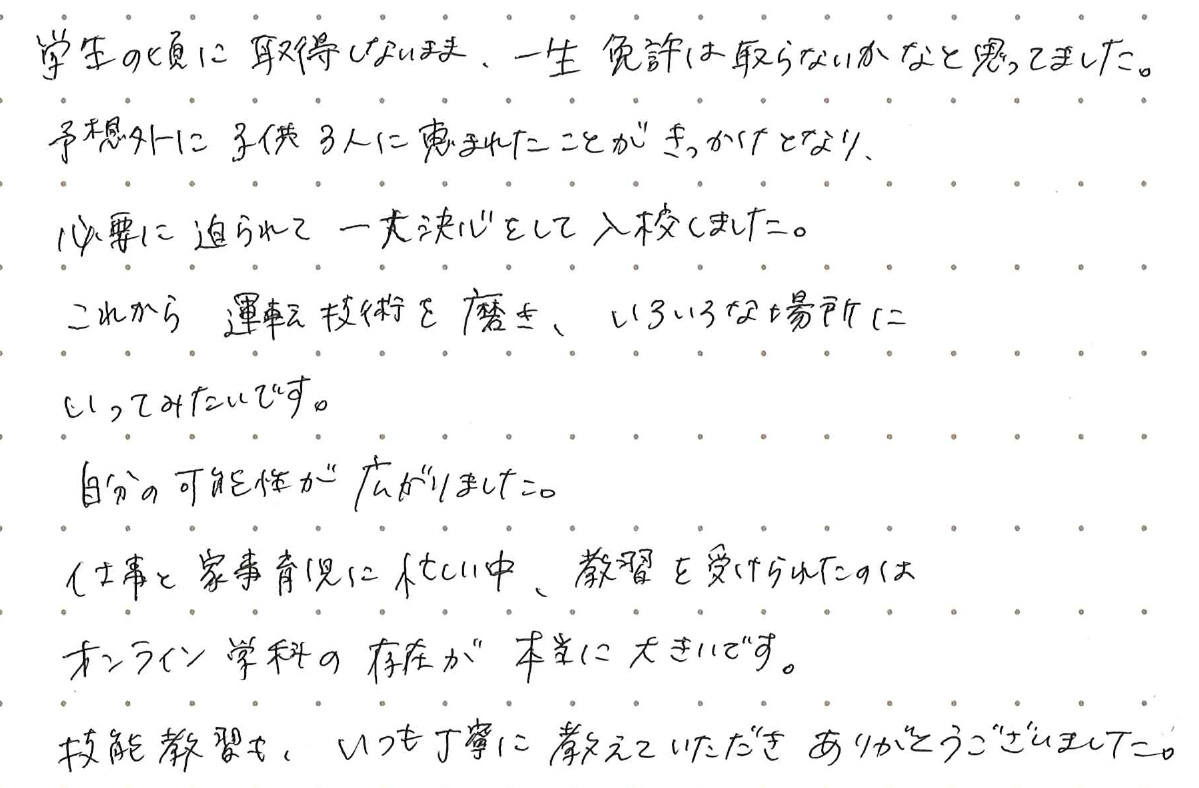 学生の頃に取得しないまま、一生免許は取らないかなと思ってました。
予想外に子供3人に恵まれたことがきっかけとなり、
必要に迫られて一大決心をして入校しました。
これから運転技術を磨き、いろいろな場所に
いってみたいです。
自分の可能性が広がりました。
仕事と家事育児に忙しい中、教習を受けられたのは
オンライン学科の存在が本当に大きいです。
技能教習も、いつも丁寧に教えていただきありがとうございました。